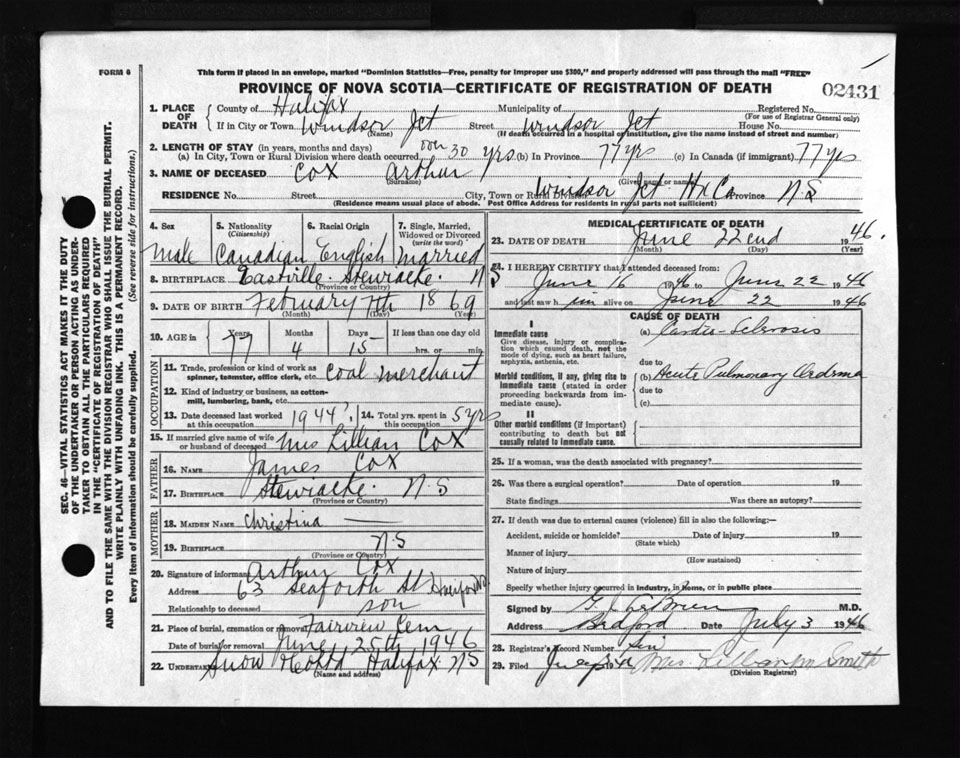 FORM 6
This form if placed in an envelope, marked "Dominion Statistics—Free, penalty for improper use $300," and properly addressed will pass through the mail "FREE"
PROVINCE OF NOVA SCOTIA—CERTIFICATE OF REGISTRATION OF DEATH
02431
SEC. 46—VITAL STATISTICS ACT MAKES IT THE DUTY
OF THE UNDERTAKER OR PERSON ACTING AS UNDER-
TAKER TO OBTAIN ALL THE PARTICULARS REQUIRED
IN THE "CERTIFICATE OF REGISTRATION OF DEATH"
AND TO FILE THE SAME WITH THE DIVISION REGISTRAR WHO SHALL ISSUE THE BURIAL PERMIT.
WRITE PLAINLY WITH UNFADING INK. THIS IS A PERMANENT RECORD.
Every item of information should be carefully supplied. (See reverse side for instructions.)
1. PLACE OF DEATH
County of Halifax Municipality of Registered No.
(For use of Registrar General only)
If in City or Town Windsor Jct Street Windsor Jct House No.
(Name) (If death occurred in a hospital or institution, give the name instead of street and number)
2. LENGTH OF STAY (in years, months and days)
(a) In City, Town or Rural Division where death occurred over 30 yrs (b) In Province 77 yrs (c) In Canada (if immigrant) 77 yrs
3. NAME OF DECEASED Cox Arthur
(Surname) (Given name or names)
RESIDENCE No. Street City, Town or Rural Division Windsor Jct Hx Co Province N S
(Residence means usual place of abode. Post Office Address for residents in rural parts not sufficient)
4. Sex
Male
5. Nationality
(Citizenship)
Canadian
6. Racial Origin
English
7. Single, Married, Widowed or Divorced
(write the word)
Married
8. BIRTHPLACE Eastville Stewiacke N S
(Province or Country)
9. DATE OF BIRTH February 7th 1869
(Month) (Day) (Year)
10. AGE in Years Months Days If less than one day old
77 4 15 hrs. or min.
OCCUPATION
11. Trade, profession or kind of work as spinner, teamster, office clerk, etc. Coal Merchant
12. Kind of industry or business, as cotton-mill, lumbering, bank, etc.
13. Date deceased last worked at this occupation 1944? 14. Total yrs. spent in this occupation 5 yrs
15. If married give name of wife or husband of deceased Mrs Lillian Cox
FATHER
16. NAME James Cox
17. BIRTHPLACE Stewiacke N S
(Province or Country)
MOTHER
18. MAIDEN NAME Christina —
19. BIRTHPLACE N S
(Province or Country)
20. Signature of informant Arthur Cox
Address 63 Seaforth St Halifax N.S.
Relationship to deceased son
21. Place of burial, cremation or removal Fairview Cem
Date of burial or removal June 25th 1946
22. UNDERTAKER Snow Halifax N S
(Name and address)
MEDICAL CERTIFICATE OF DEATH
23. DATE OF DEATH June 22nd 1946.
(Month) (Day)
24. I HEREBY CERTIFY that I attended deceased from:
June 16 1946 to June 22 1946
and last saw him alive on June 22 1946
CAUSE OF DEATH
I
Immediate cause
Give disease, injury or complication which caused death, not the mode of dying, such as heart failure, asphyxia, asthenia, etc.
(a) Cardio-Sclerosis
due to
Morbid conditions, if any, giving rise to immediate cause (stated in order proceeding backwards from immediate cause).
(b) Acute Pulmonary Oedema
due to
(c)
II
Other morbid conditions (if important) contributing to death but not causally related to immediate cause.
25. If a woman, was the death associated with pregnancy?
26. Was there a surgical operation? Date of operation 19
State findings Was there an autopsy?
27. If death was due to external causes (violence) fill in also the following:—
Accident, suicide or homicide? Date of injury 19
(State which)
Manner of injury
(How sustained)
Nature of injury
Specify whether injury occurred in industry, in home, or in public place
Signed by M.D.
Address Bedford Date July 3 1946
28. Registrar's Record Number Six
29. Filed Mrs. Lillian M Smith
(Division Registrar)